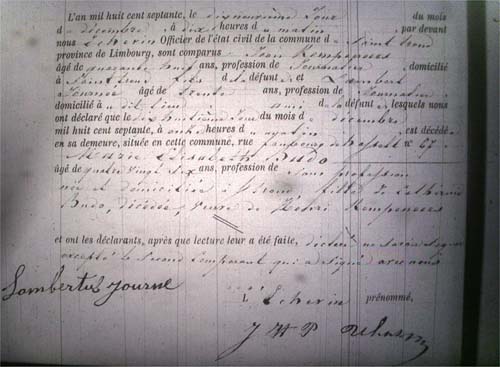 L'an mil huit cent septante, le dixneuvième jour du mois
d décembre à dix heures d matin par devant
nous Officier de l'état civil de la commune d Saint Trond
province de Limbourg, sont comparus Jean Kempeneers
âgé de quarante neuf ans, profession de Journalier domicilié
à fils d la défunte et Lambert
Journée âgé de trente ans, profession de Journalier
domicilié à dit lieu ami d la défunte lesquels nous
ont déclaré que le dixhuitième jour du mois de décembre
mil huit cent septante, à onze heures d matin est décédée
en sa demeure, située en cette commune, rue faubourg de Hasselt n° 67
Marie Elisabeth Budo
âgé de quatre vingt six ans, profession de sans profession
née et domiciliée à St Trond, fille de
Budo, décédée, veuve de Henri Kempeneers
et ont les déclarants, après que lecture leur a été faite, déclaré ne savoir signer
excepté le second comparant qui a signé avec nous
Lambertus Journe
L prénommé,
J H P